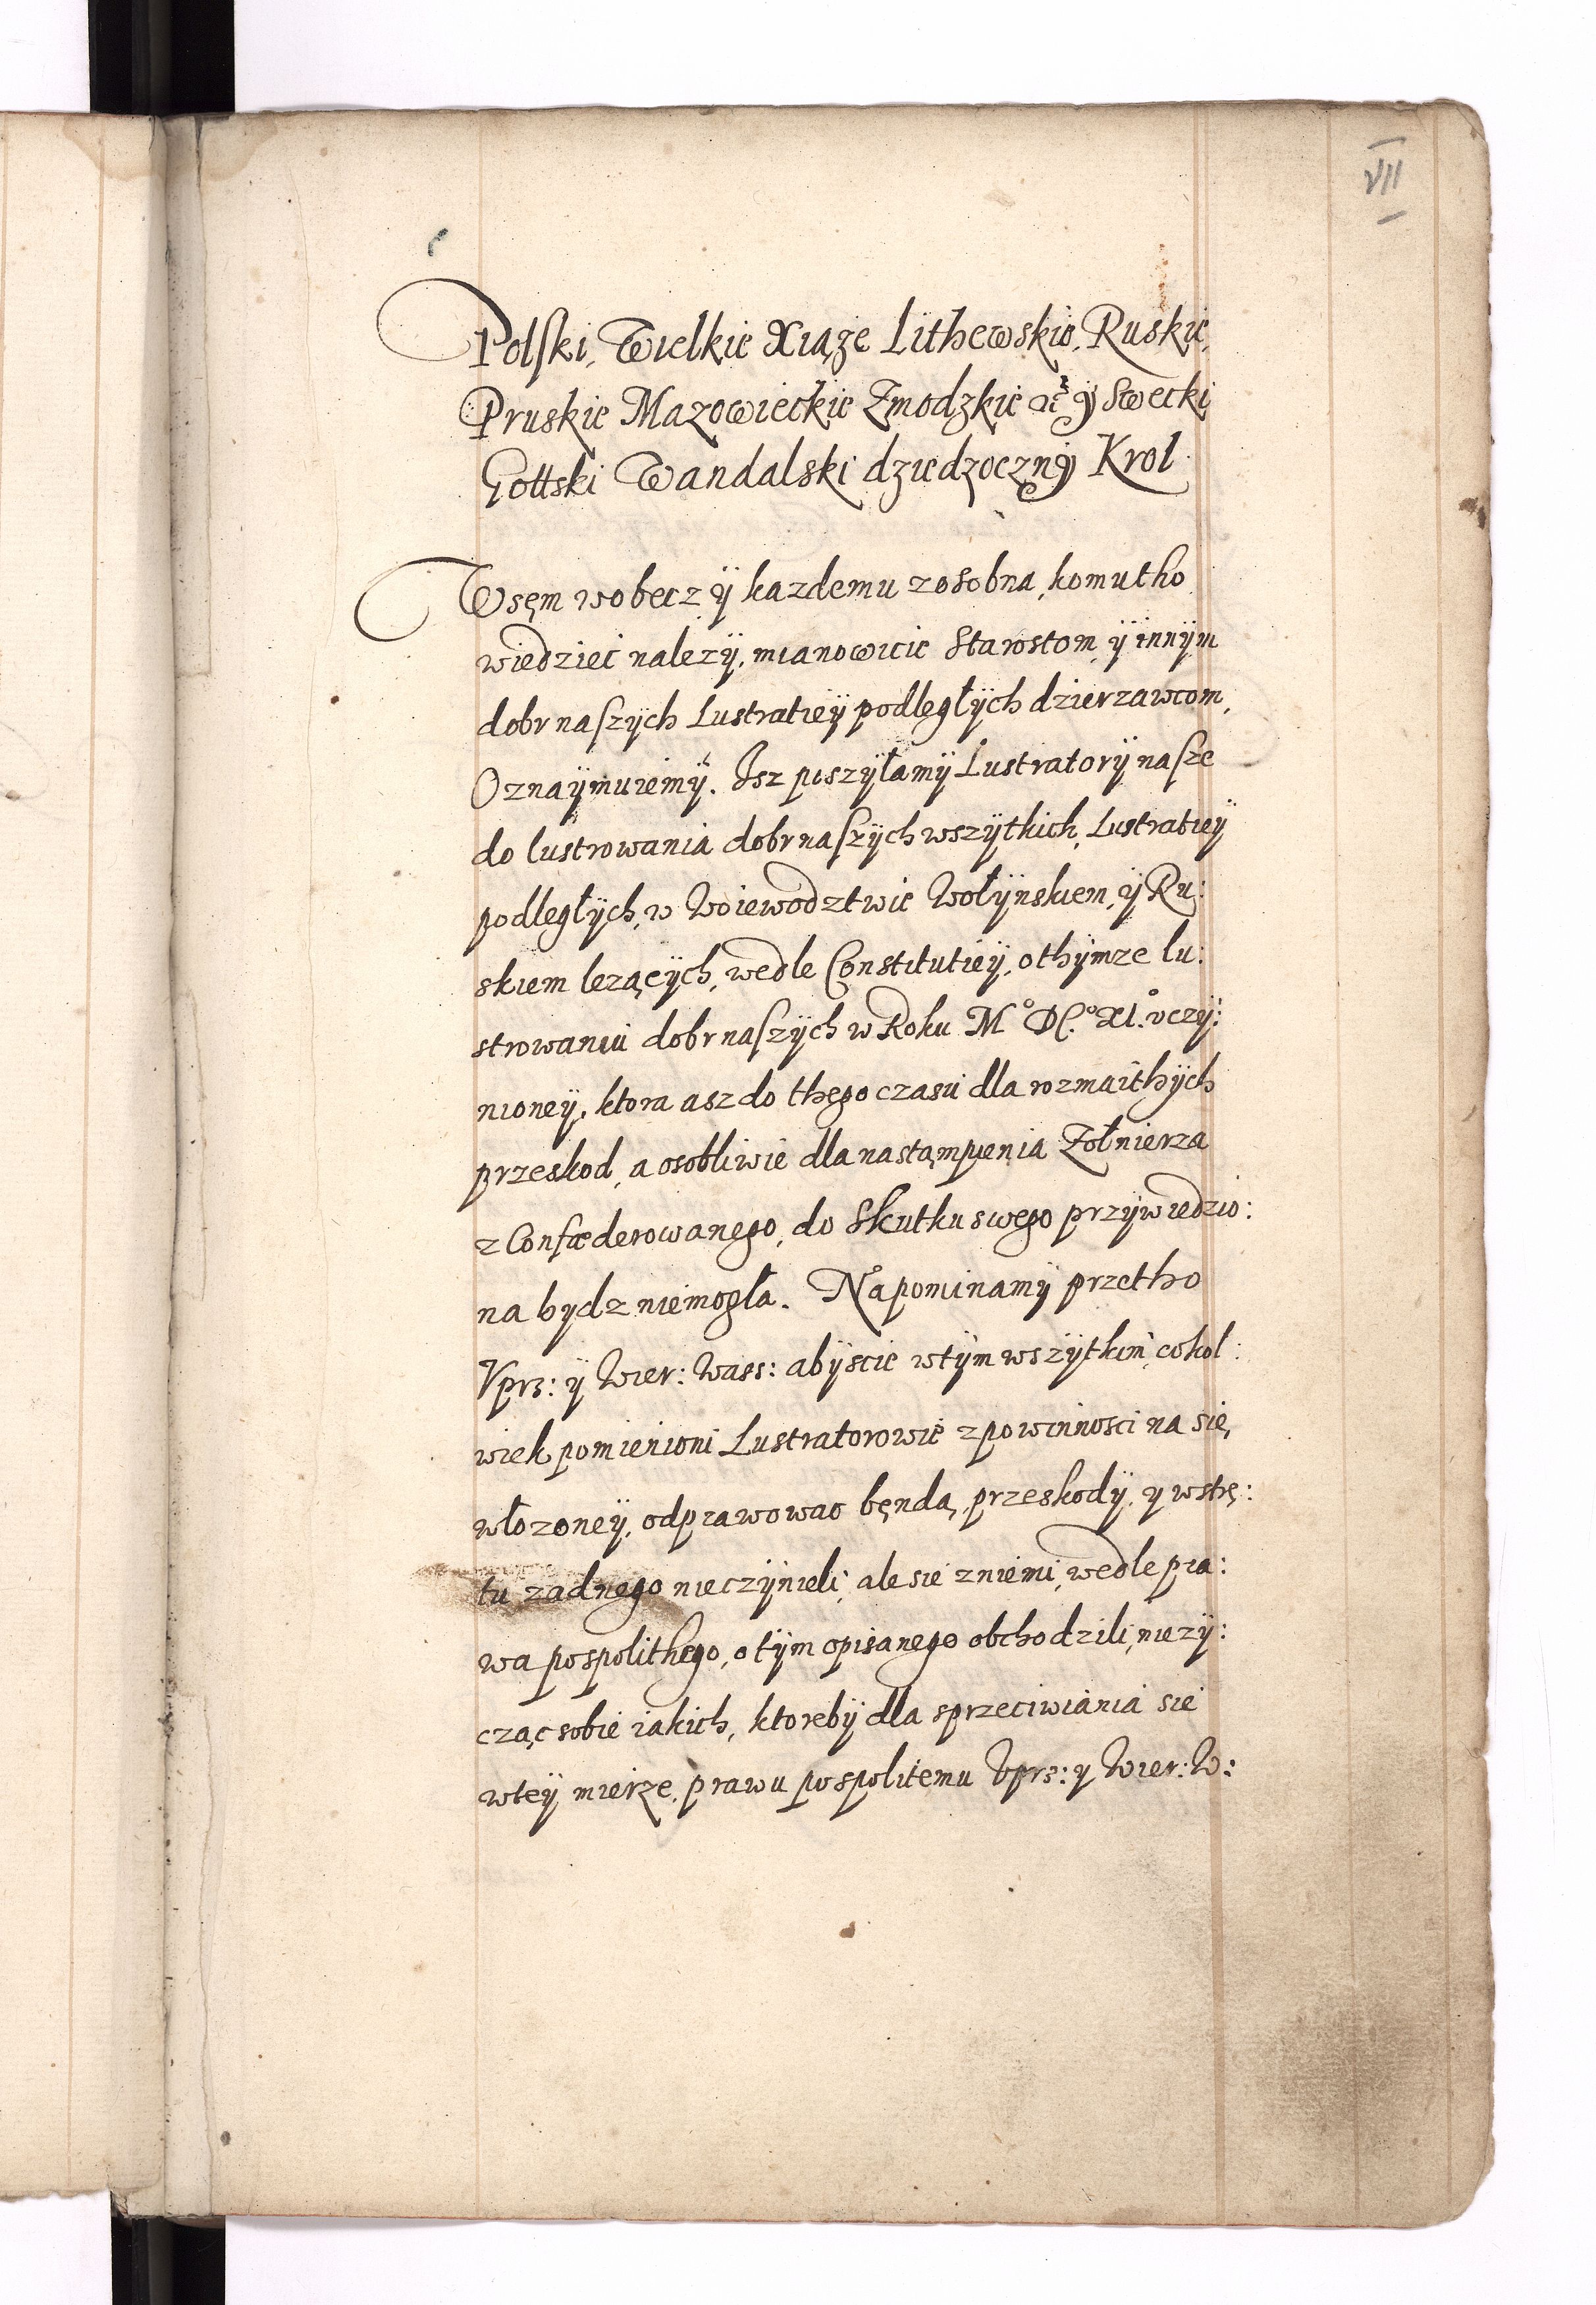 VII
Polski, Wielkie Xiąże Lithewskie, Ruskie,
Pruskie Mazowieckie Zmodzkie etc ÿ Swecki
Gottski Wandalski dziedzicznÿ Krol
Wsęm wobecz ÿ kazdemu zosobna, komutho
wiedzieć nalezÿ, mianowicie Starostom, ÿ innÿm
dobr naszÿch Lustratieÿ podległÿch dzierzawcom,
Oznaÿmuiemÿ. Isz poszÿłamÿ Lustratorÿ nasze
do lustrowania dobr naszÿch wszÿtkich, Lustratieÿ
podległÿch, w Woiewodztwie Wołÿnskiem, ÿ Ru:
skiem lezącÿch, wedle Constitutieÿ, o thÿmze lu:
strowaniu dobr naszÿch w Roku M° DC.° XI.° vczÿ:
nioneÿ, ktora asz do thego czasu dla rozmaithÿch
przeskod, a osobliwie dla nastąmpienia Zołnierza
z Confæderowanego, do Skutku swego przÿwiedzio:
na bydz niemogła. Napominamÿ przetho
Vprz: ÿ Wier: Wass: abÿscie wtÿm wszÿtkim, cokol:
wiek pomienioni Lustratorowie zpowinnosci na się,
włozoneÿ, odprawowac bęndą, przeskodÿ, y wstrę:
tu zadnego nieczÿnieli, ale sie zniemi, wedle pra:
wa pospolithego, o tÿm opisanego obchodzili, niezÿ:
cząc sobie iakich, ktorebÿ dla sprzeciwiania sie
wteÿ mierze, prawu pospolitemu Vprz: y Wier: W: